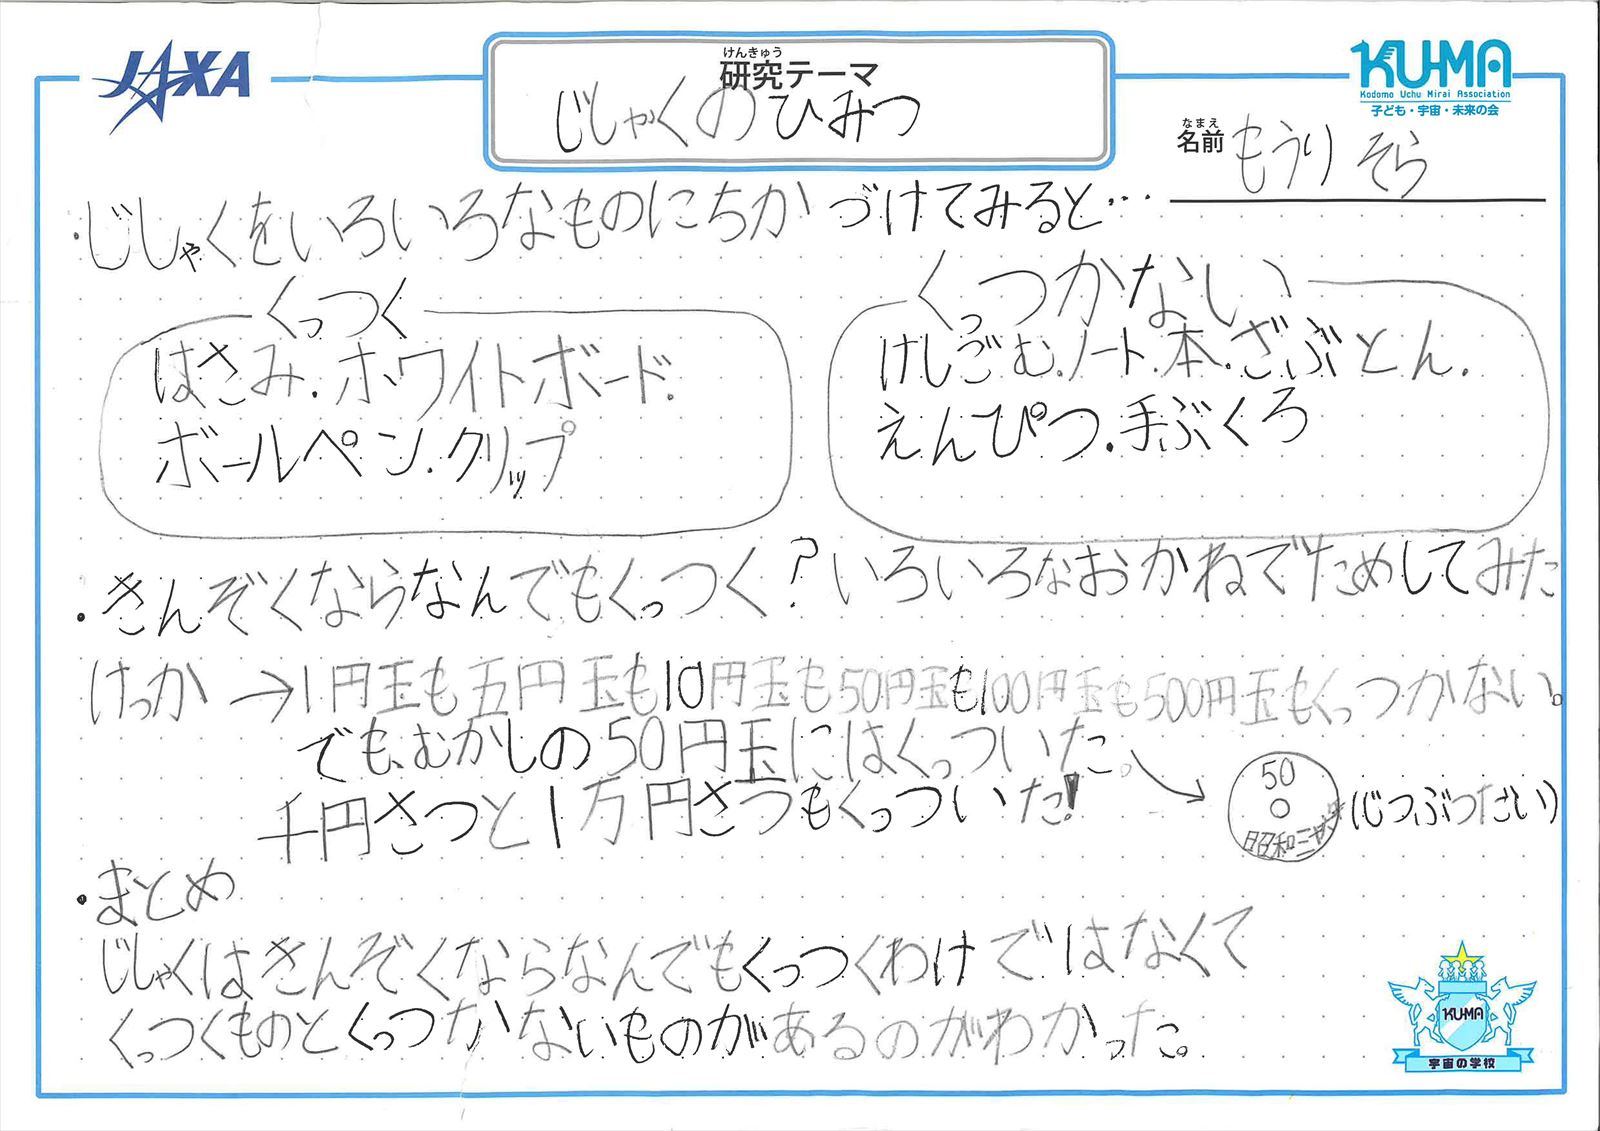 JAXA
けんきゅう
研究テーマ
じしゃくのひみつ
KU-MA
Kodomo Uchu Mirai Association
子ども・宇宙・未来の会
なまえ
名前 もうり そら
・じしゃくをいろいろなものにちかづけてみると…
くっつく
はさみ.ホワイトボード.
ボールペン.クリップ
くっつかない
けしごむ.ノート.本.ざぶとん.
えんぴつ.手ぶくろ
・きんぞくならなんでもくっつく?いろいろなおかねでためしてみた
けっか→1円玉も五円玉も10円玉も50円玉も100円玉も500円玉もくっつかない。
でも、むかしの50円玉にはくっついた。
50
昭和三十
(じつぶつだい)
千円さつと1万円さつもくっついた!
・まとめ
じしゃくはきんぞくならなんでもくっつくわけではなくて
くっつくものとくっつかないものがあるのがわかった。
KU-MA
宇宙の学校